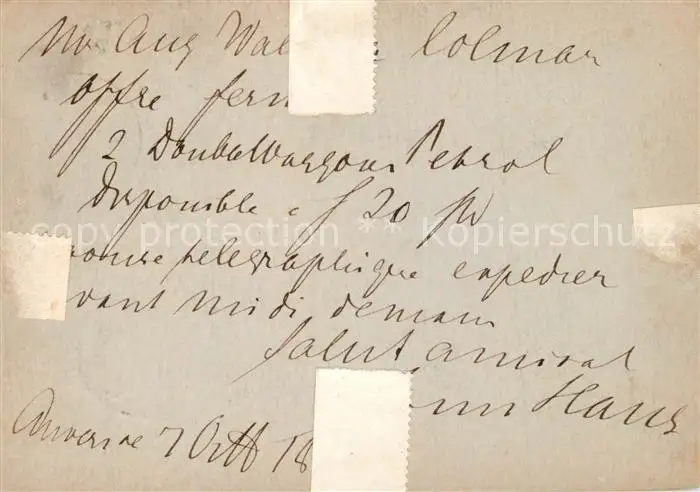 Mr Aug Wal Colmar
Offre ferm
2 Doubelwaggons Petrol
disponible à f 20 pr
ponse telegraphique expedier
vant midi demain
Salut amical
Hans
Anvers le 7 Octb 18
copy protection ** Kopierschutz